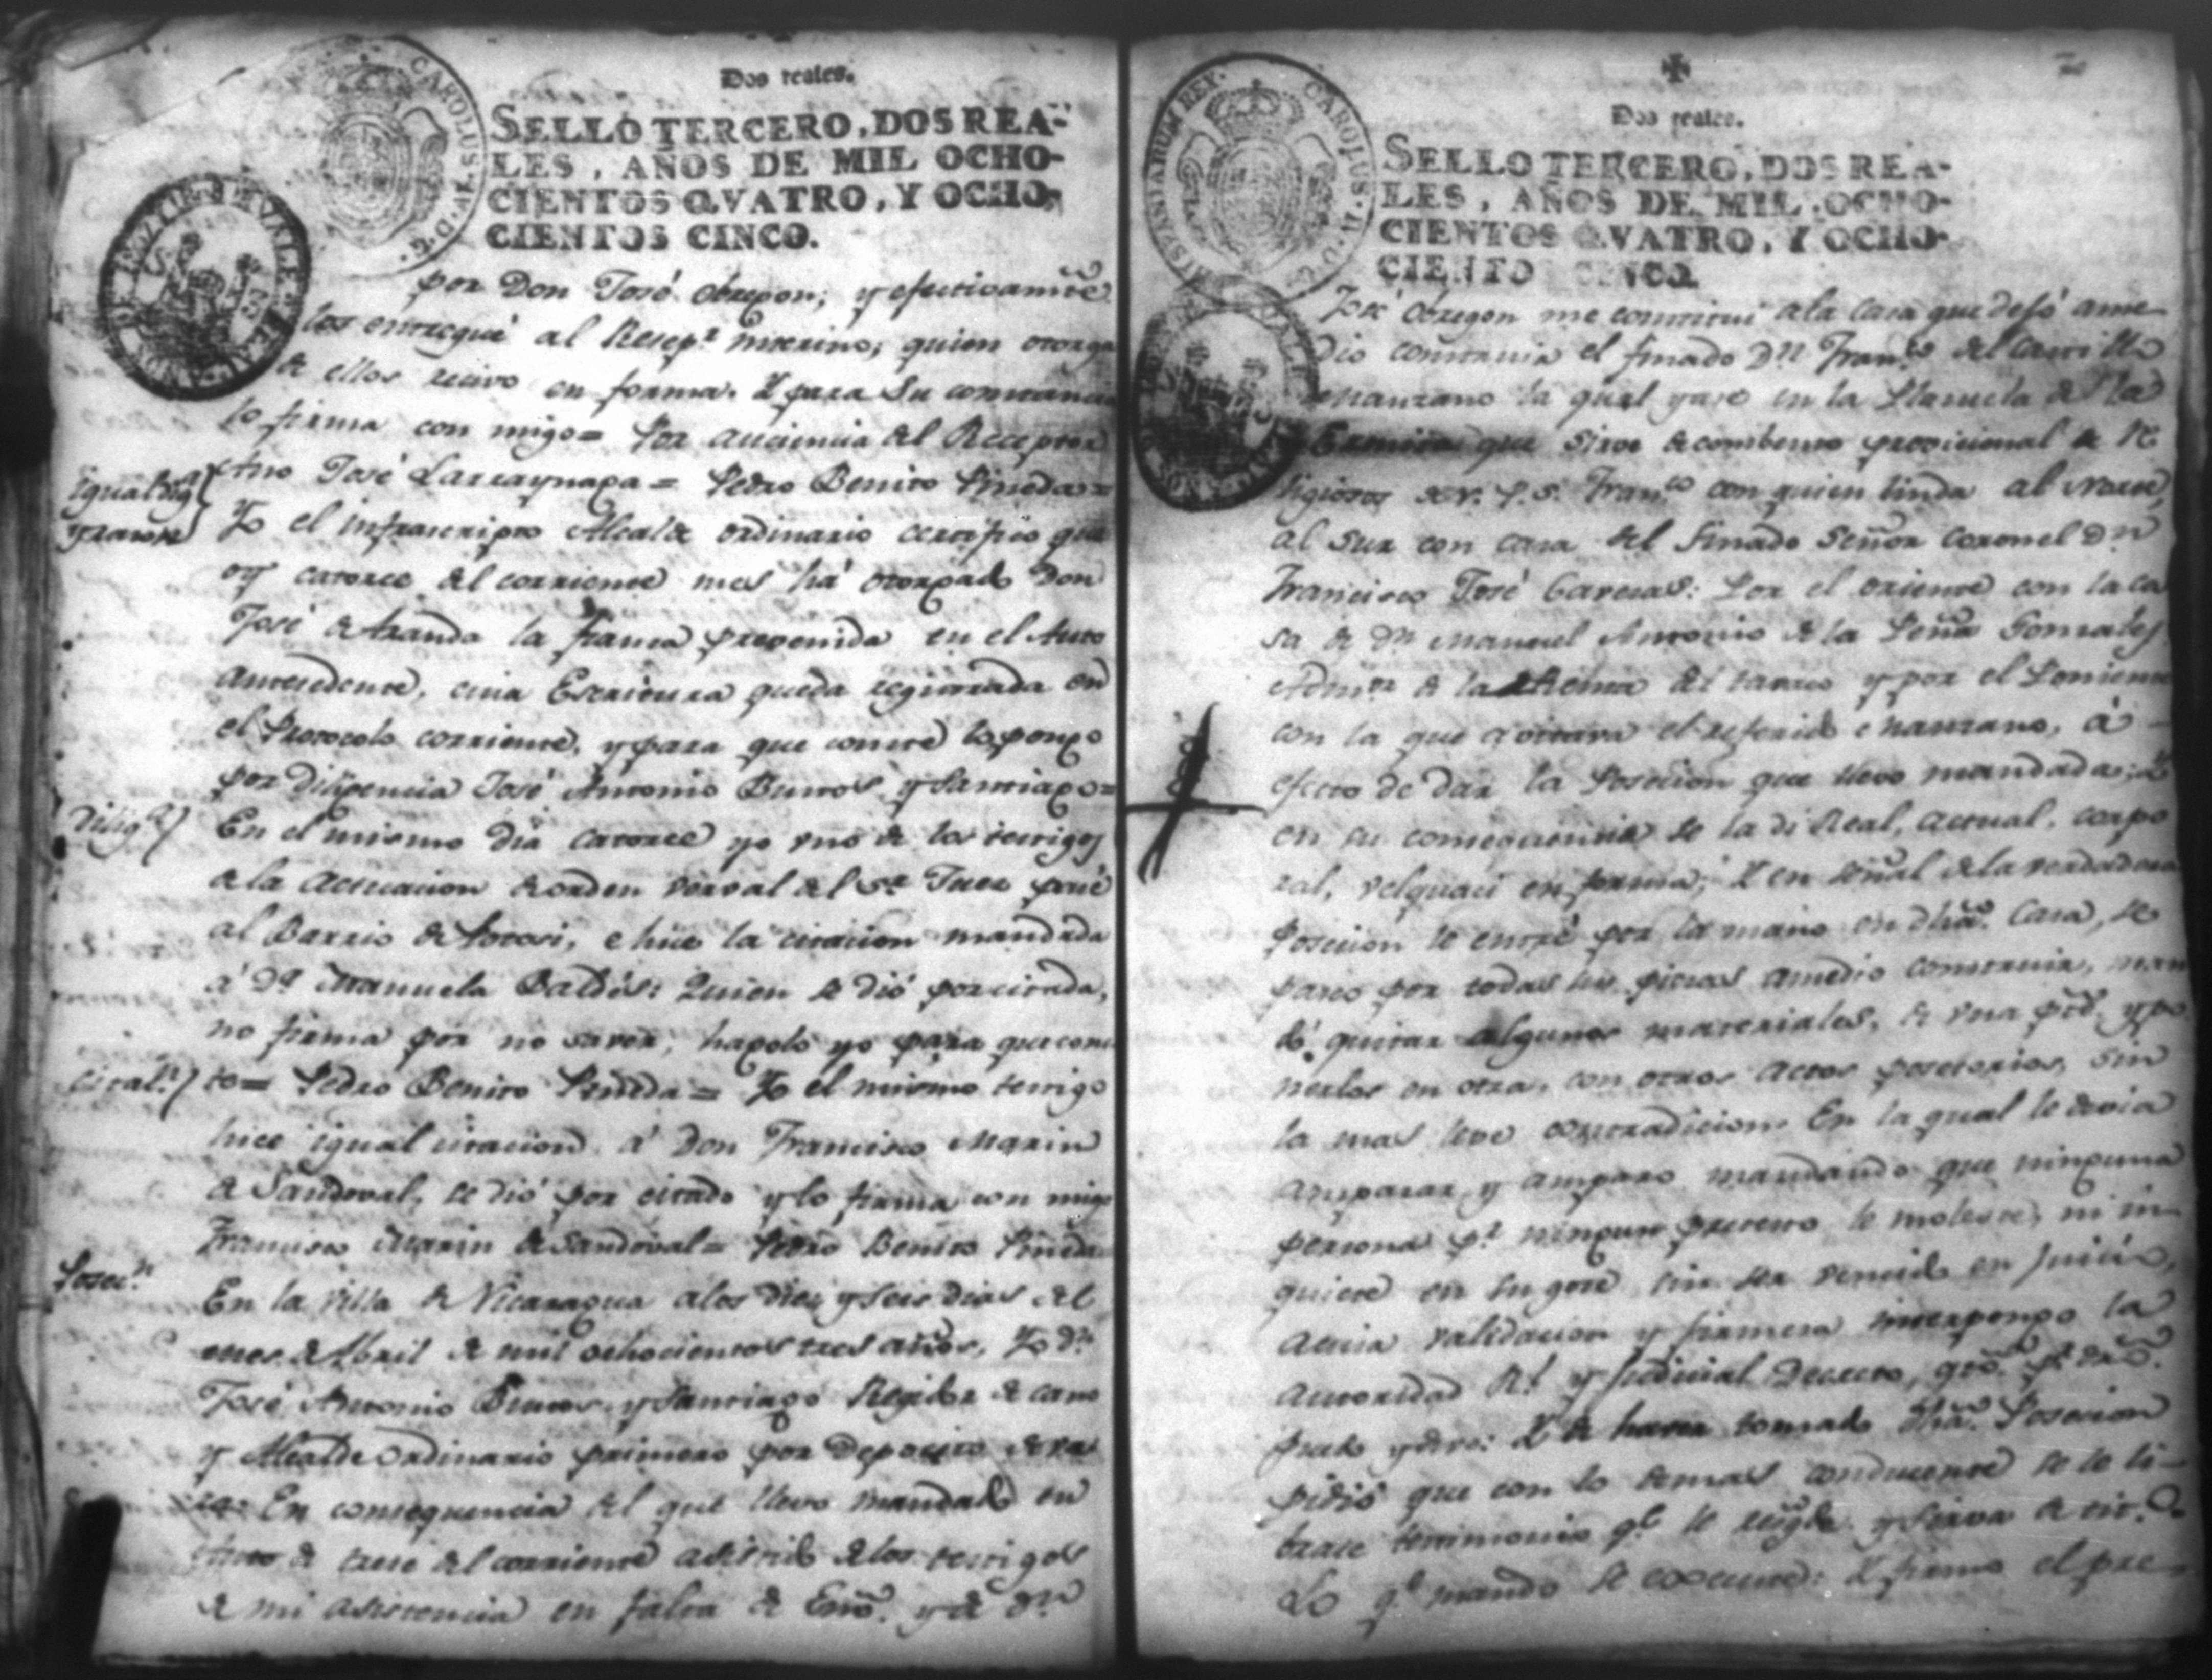 Dos reales.
SELLO TERCERO, DOS REA-
LES, AÑOS DE MIL OCHO-
CIENTOS QVATRO, Y OCHO-
CIENTOS CINCO.
CAROLUS. IV. D. G.
por Don José Obregon; y efectivamte
los entregué al Resepr. interino; quien otorga
de ellos recivo en forma. Y para su constancia
lo firma con migo= Por auciencia del Receptor
Igual dilig.a
y razon
Ano José Larraynaga= Pedro Benito Pineda=
Yo el infrascripto Alcalde ordinario certifico que
oy catorce del corriente mes há otorgado Don
José de Aranda la fianza prevenida en el Auto
antecedente, cuia Escritura queda registrada en
el Protocolo corriente, y para que conste lo pongo
por diligencia José Antonio Bustos y Santiago=
Dilig.a
En el mismo dia catorce yo uno de los testigos
de la actuacion de orden verval del Sr. Juez pasé
al Barrio de Potosi, e hise la citacion mandada
á Da. Manuela Baldés: Quien se dió por citada,
no firma por no saver, hagolo yo para que cons
Citac.n
te= Pedro Benito Pineda= Yo el mismo testigo
hice igual citacion á Don Francisco Marin
de Sandoval, se dió por citado y lo firma con migo
Francisco Marin de Sandoval= Pedro Benito Pineda
Posec.n
En la Villa de Nicaragua a los diez y seis dias del
mes de Abril de mil ochocientos tres años, Yo Dn.
José Antonio Bustos y Santiago Regidor de cano
y Alcalde Ordinario primero por Deposito de va
ra: En consequencia del que llevo mandado en
Auto de trese del corriente asistido de los testigos
de mi asistencia en falta de Esno. y de Dn.
Dos reales.
SELLO TERCERO, DOS REA-
LES, AÑOS DE MIL OCHO-
CIENTOS QVATRO, Y OCHO-
CIENTOS CINCO.
HISPANIARUM REX. CAROLUS. IV. D. G.
José Obregon me constitui a la casa que dejó ame
dio construir el finado Dn. Franco. del Castillo
Manzano la qual yase en la Plasuela de la
Ermita que sirve de combento provicional de Re
ligiosos de N. P. S. Franco. con quien linda al Norte,
al Sur con casa del finado Señor Coronel Dn.
Francisco José Cardenas: Por el oriente con la ca
sa de Dn. Manuel Antonio de la Peña Gonzales
Admor. de la Renta del tavaco y por el Poniente
con la que avitava el referido Manzano, á
efecto de dar la Posecion que llevo mandada; y
en su consequencia se la di Real, actual, corpo
ral, velquaci en forma; Y en señal de la verdadera
Posecion le entré por la mano en dha. Casa, se
paseó por todas sus piezas a medio construir, man
dó quitar algunos materiales, de una pte. y po
nerlos en otra, con otros actos posesorios, sin
la mas leve contradicion: En la qual le devia
amparar y amparo mandando que ninguna
persona pr. ningun pretesto le moleste, ni in
quiete en su goze sin ser vencido en Juicio,
a cuia validacion y firmeza interpongo la
autoridad Rl. y Judicial Decreto,
y dro: Y de haver tomado dha. Posecion
pidió que con lo demas conducente se le li-
brase testimonio qe. le resgde. y sirva de tit.o
Lo qe. mando se execute: Y firmo el pre-